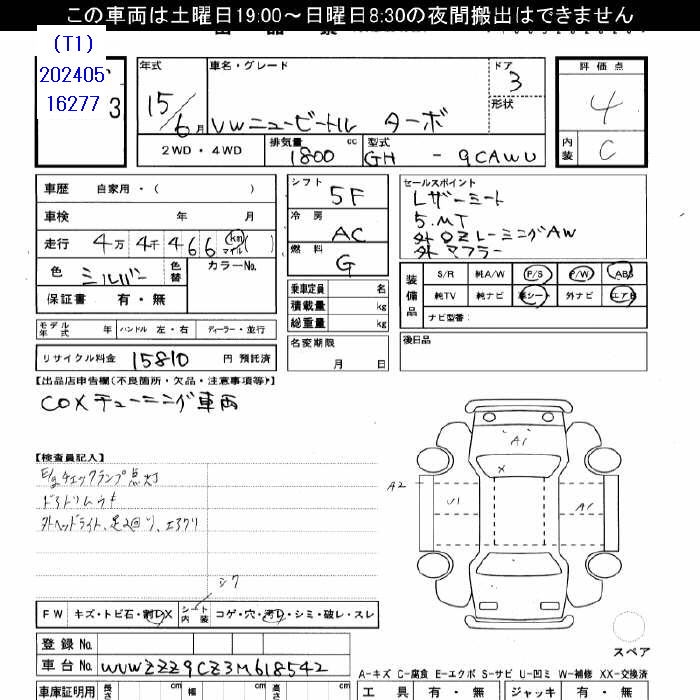 この車両は土曜日19:00～日曜日8:30の夜間搬出はできません
(T1)
202405
16277
3
年式 車名・グレード ドア 3
形状
15/6月 VWニュービートル ターボ
2WD・4WD 排気量 1800 cc 型式 GH - 9CAWU
評価点
4
内装 C
車歴 自家用・( )
車検 年 月
走行 4万 4千 466 km マイル ( )
色 シルバー 色替 カラーNo.
保証書 有・無
シフト 5F
冷房 AC
燃料 G
乗車定員 名
積載量 kg
総重量 kg
セールスポイント
レザーシート
5.MT
外OZレーシングAW
外マフラー
装備品 S/R 純A/W P/S P/W ABS
純TV 純ナビ 革シート 外ナビ エアB
ナビ型番:
モデル年式 年 ハンドル 左・右 ディーラー・並行
リサイクル料金 15810 円 預託済
名変期限
月 日
後日品
【出品店申告欄(不良箇所・欠品・注意事項等)】
COXチューニング車両
【検査員記入】
E/gチェックランプ点灯
外ヘッドライト、足2回り、エアクリ
シワ
A1
A2
U1
A1
X
FW キズ・トビ石・割D・X シート内装 コゲ・穴・汚D・シミ・破レ・スレ
スペア
登録No.
車台No. WVWZZZ9CZ3M618542
A-キズ C-腐食 E-エクボ S-サビ U-凹ミ W-補修 XX-交換済
車庫証明用 長さ cm 幅 cm cm
工具 有・無 ジャッキ 有・無